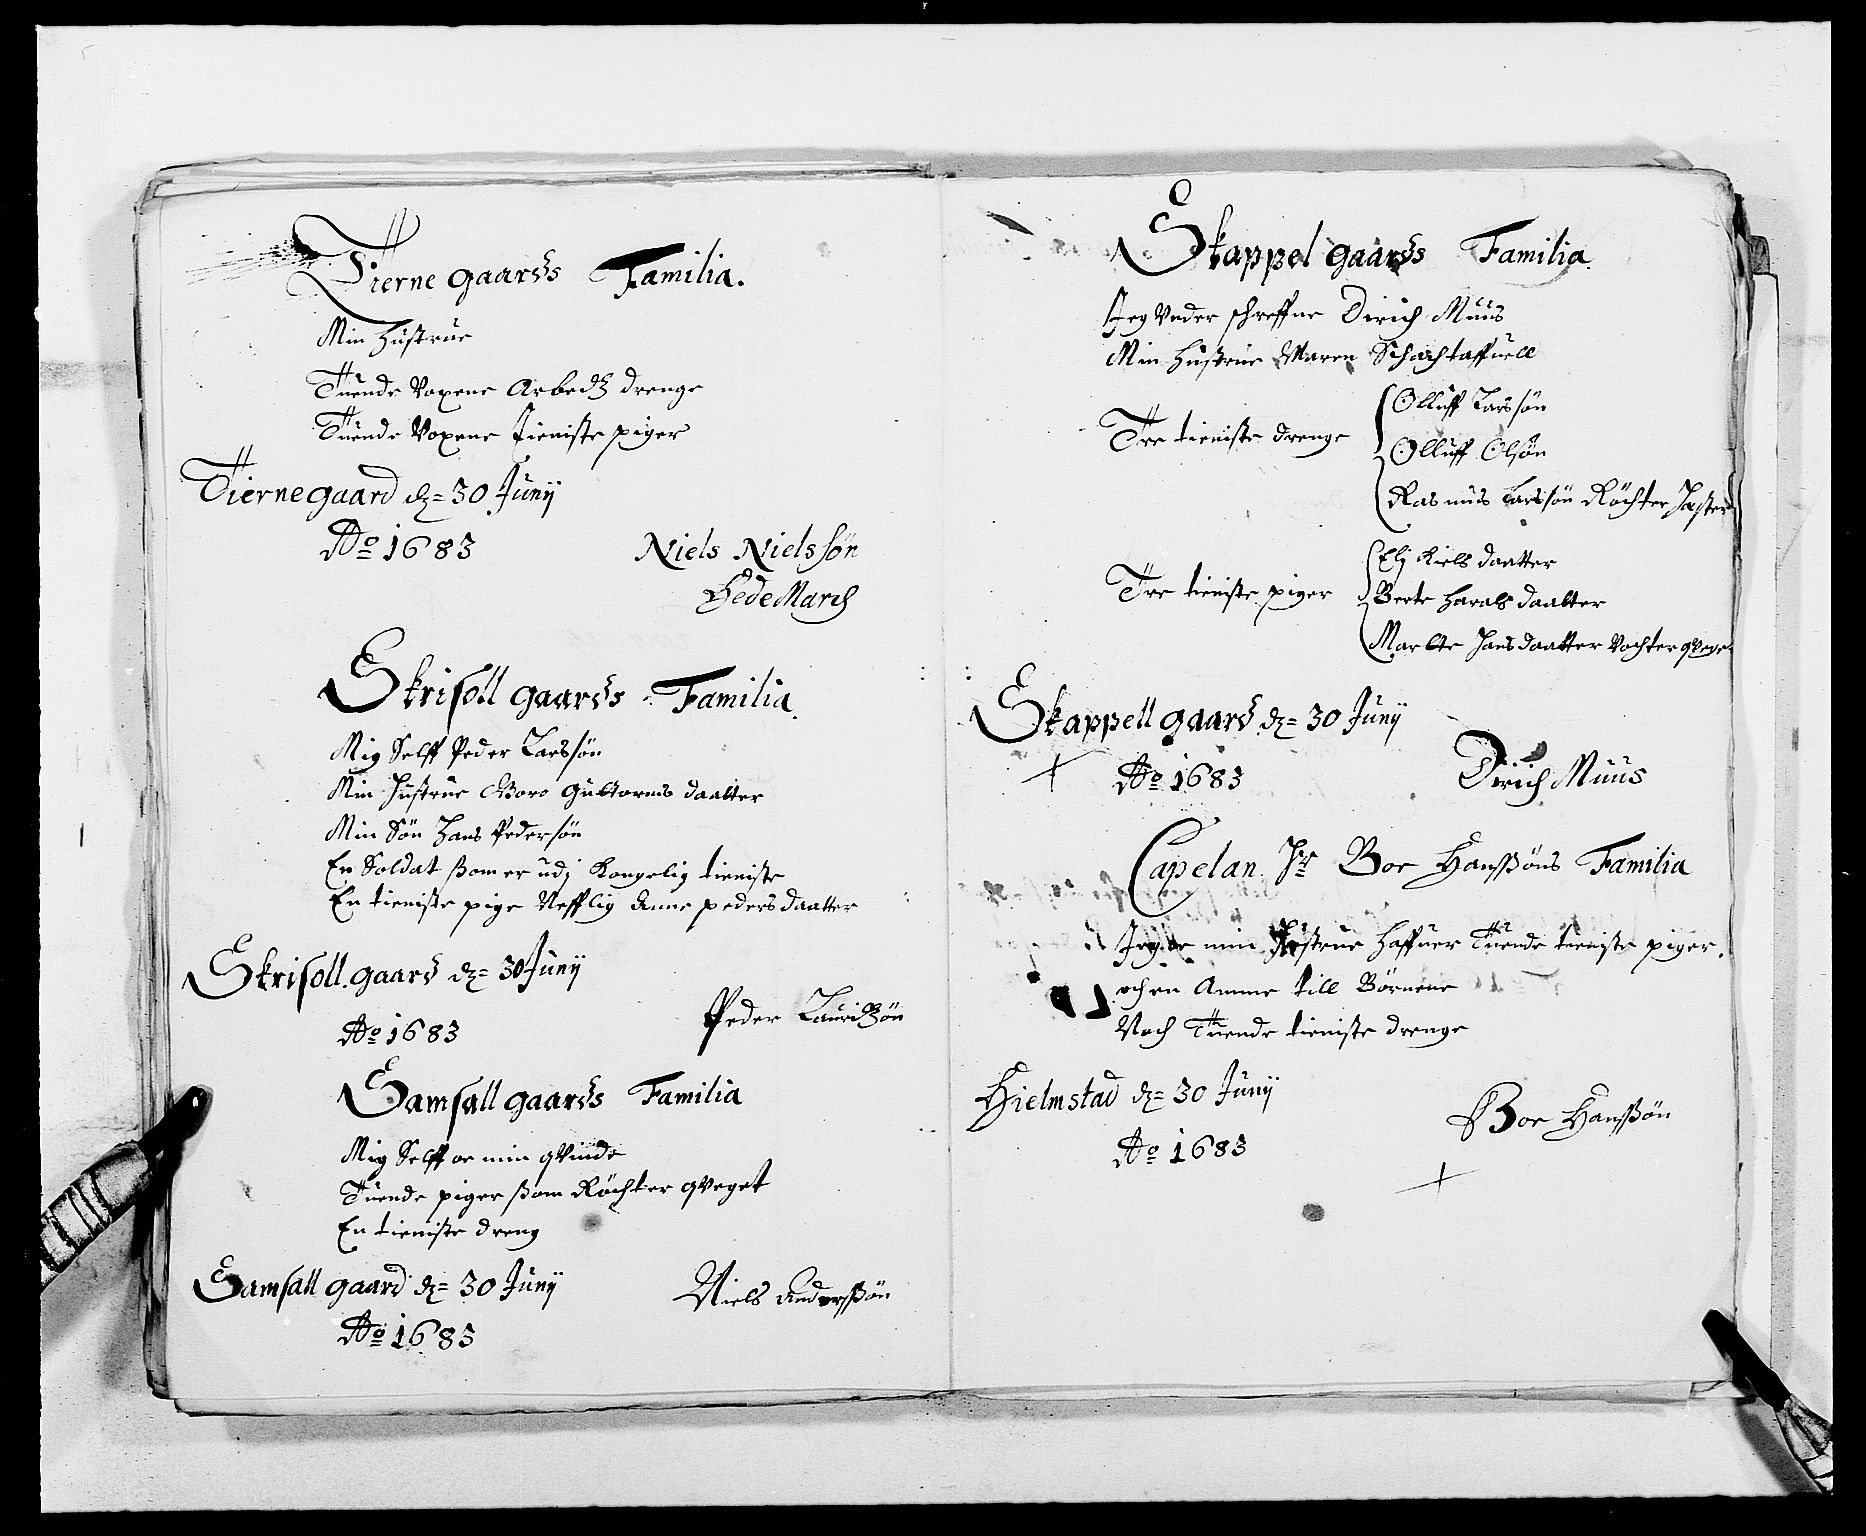 Tierne gaards Familia.
Min hustrue
Tuende Voxene Arbedtz drenge
Tuende Voxene Tieniste piger
Tierne gaard dz= 30 Junij
Ao 1683
Niels Nielssøn
HedeMarch
Skrisoll gaards Familia.
Mig Selff Peder Larssøn
Min Hustrue Goro Guttorms daatter
Min Søn Hans Pedersøn
En Soldat ßom er udj Kongelig tieniste
En tieniste pige Nefflig Anne peders daatter
Skrisoll gaard dz= 30 Junij
Ao 1683
Peder Lauridtzøn
Samsall gaards Familia
Mig Selff oc min qvinde
Tuende piger ßom Röchter qveget
En tieniste dreng
Samsall gaard dz= 30 Junij
Ao 1683
Niels Anderßøn
Skappel gaards Familia.
Jeg Under schreffne Dirich Muus
Min hustrue Maren Schachtaffuell
Tre tieniste drenge
Olluff Larssøn
Olluff Olsøn
Rasmus Larssøn Röchter Hester
Tre tieniste piger
Elj Niels daatter
Berte Harals daatter
Marlte Hans daatter Vochter qveget
Skappell gaard dz= 30 Junij
Ao 1683
Dirich Muus
Capelan Hr Boe Hanssøns Familia
Jeg oc min Hustrue haffuer Tuende tieniste piger.
och en Amme till Børnene
Noch Tuende tieniste drenge
Hielmstad dz= 30 Junij
Ao 1683
Boe Hanssøn